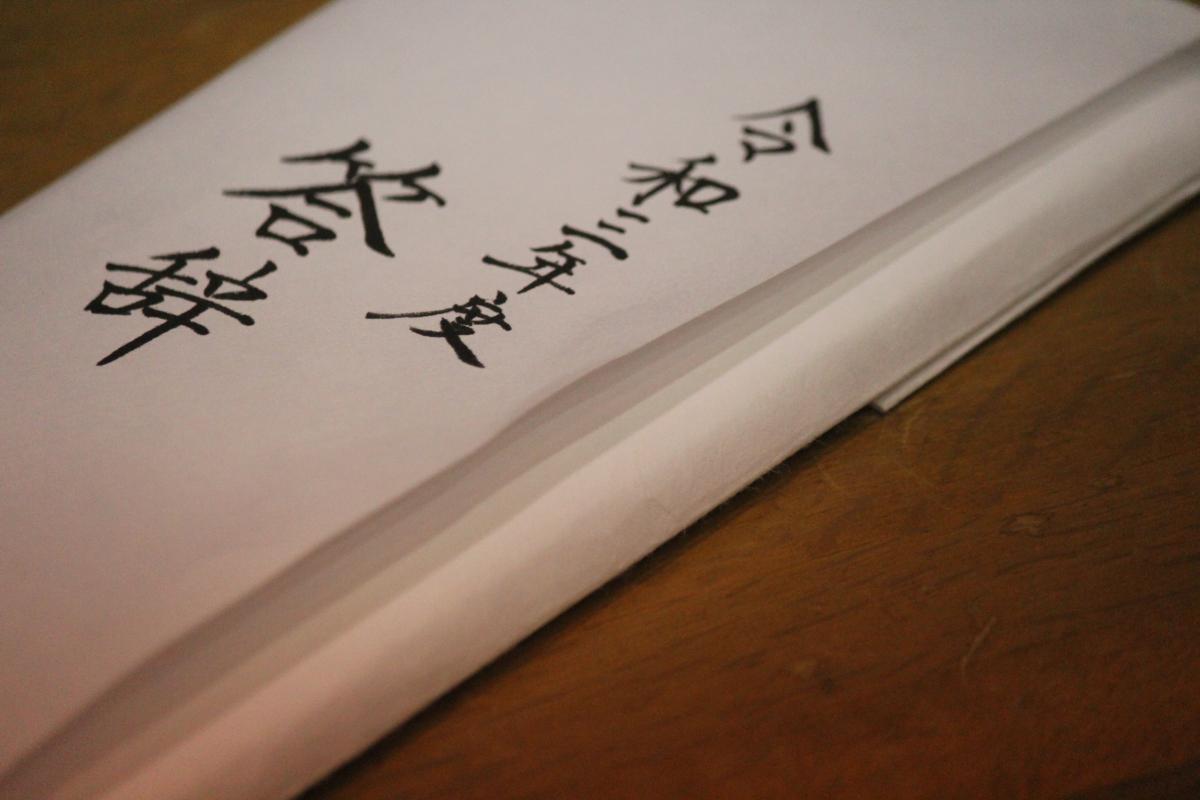 令和三年度
答辞